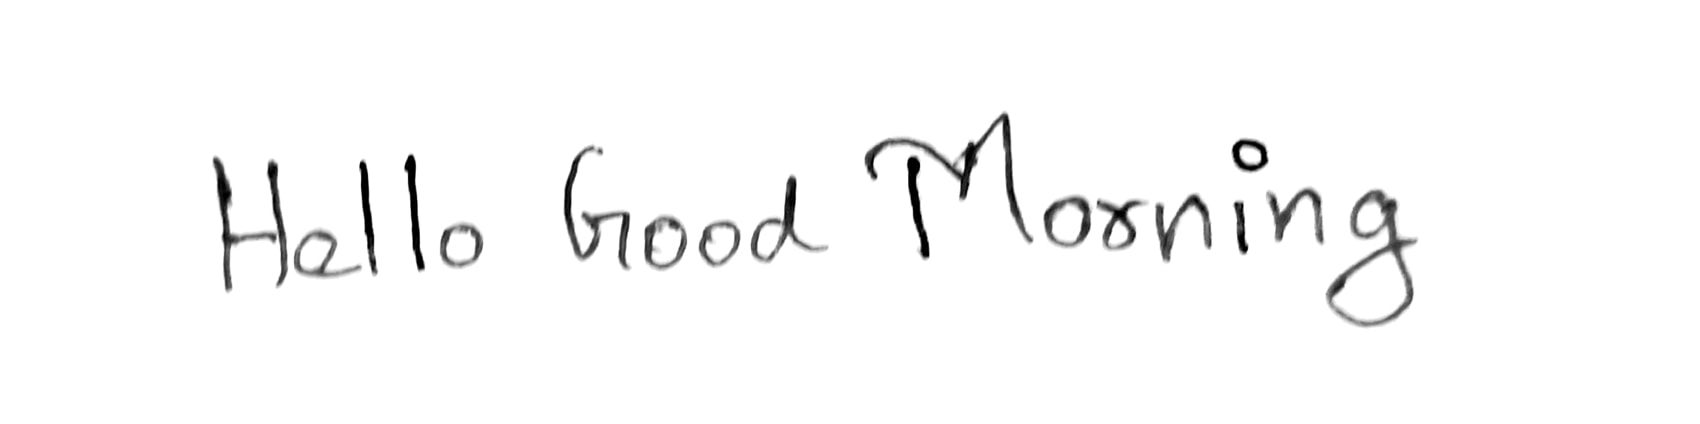 Hello Good Morning